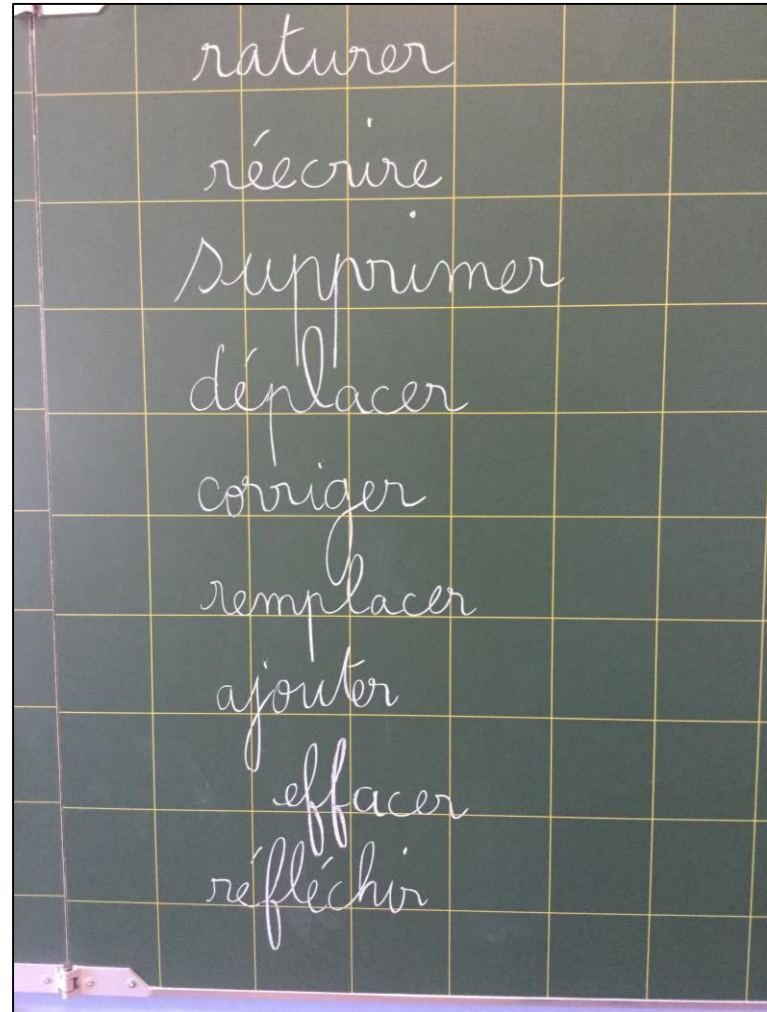 raturer
réecrire
supprimer
déplacer
corriger
remplacer
ajouter
effacer
réfléchir